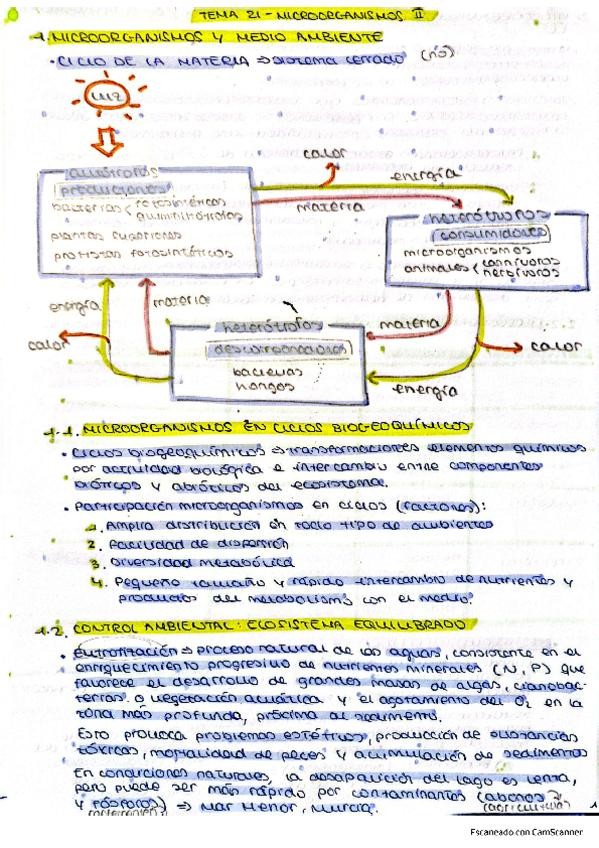 TEMA 21 - MICROORGANISMOS II
1. MICROORGANISMOS Y MEDIO AMBIENTE
• CICLO DE LA MATERIA ⇒ sistema cerrado (no)
LUZ
calor
energía
materia
autótrofos
productores
bacterias fotosintéticas
quimiolitótrofas
plantas superiores
protistas fotosintéticos
heterótrofos
consumidores
microorganismos
animales carnívoros
herbívoros
energía
materia
calor
heterótrofos
descomponedores
bacterias
hongos
materia
calor
energía
1.1. MICROORGANISMOS EN CICLOS BIOGEOQUÍMICOS
• Ciclos biogeoquímicos ⇒ transformaciones elementos químicos
por actividad biológica e intercambio entre componentes
bióticos y abióticos del ecosistema.
• Participación microorganismos en ciclos (factores):
1. Amplia distribución en todo tipo de ambientes
2. Facilidad de dispersión
3. Diversidad metabólica
4. Pequeño tamaño y rápido intercambio de nutrientes y
productos del metabolismo con el medio.
1.2. CONTROL AMBIENTAL: ECOSISTEMA EQUILIBRADO
• Eutrofización ⇒ proceso natural de las aguas, consistente en el
enriquecimiento progresivo de nutrientes minerales (N, P) que
favorece el desarrollo de grandes masas de algas, cianobac-
terias o vegetación acuática y el agotamiento del O₂ en la
zona más profunda, próxima al sedimento.
Esto provoca problemas estéticos, producción de sustancias
tóxicas, mortalidad de peces y acumulación de sedimentos
En condiciones naturales, la desaparición del lago es lenta,
pero puede ser más rápido por contaminantes (abonos
y fósforos) ⇒ Mar Menor, Murcia.
(detergentes) (agricultura)
1
Escaneado con CamScanner